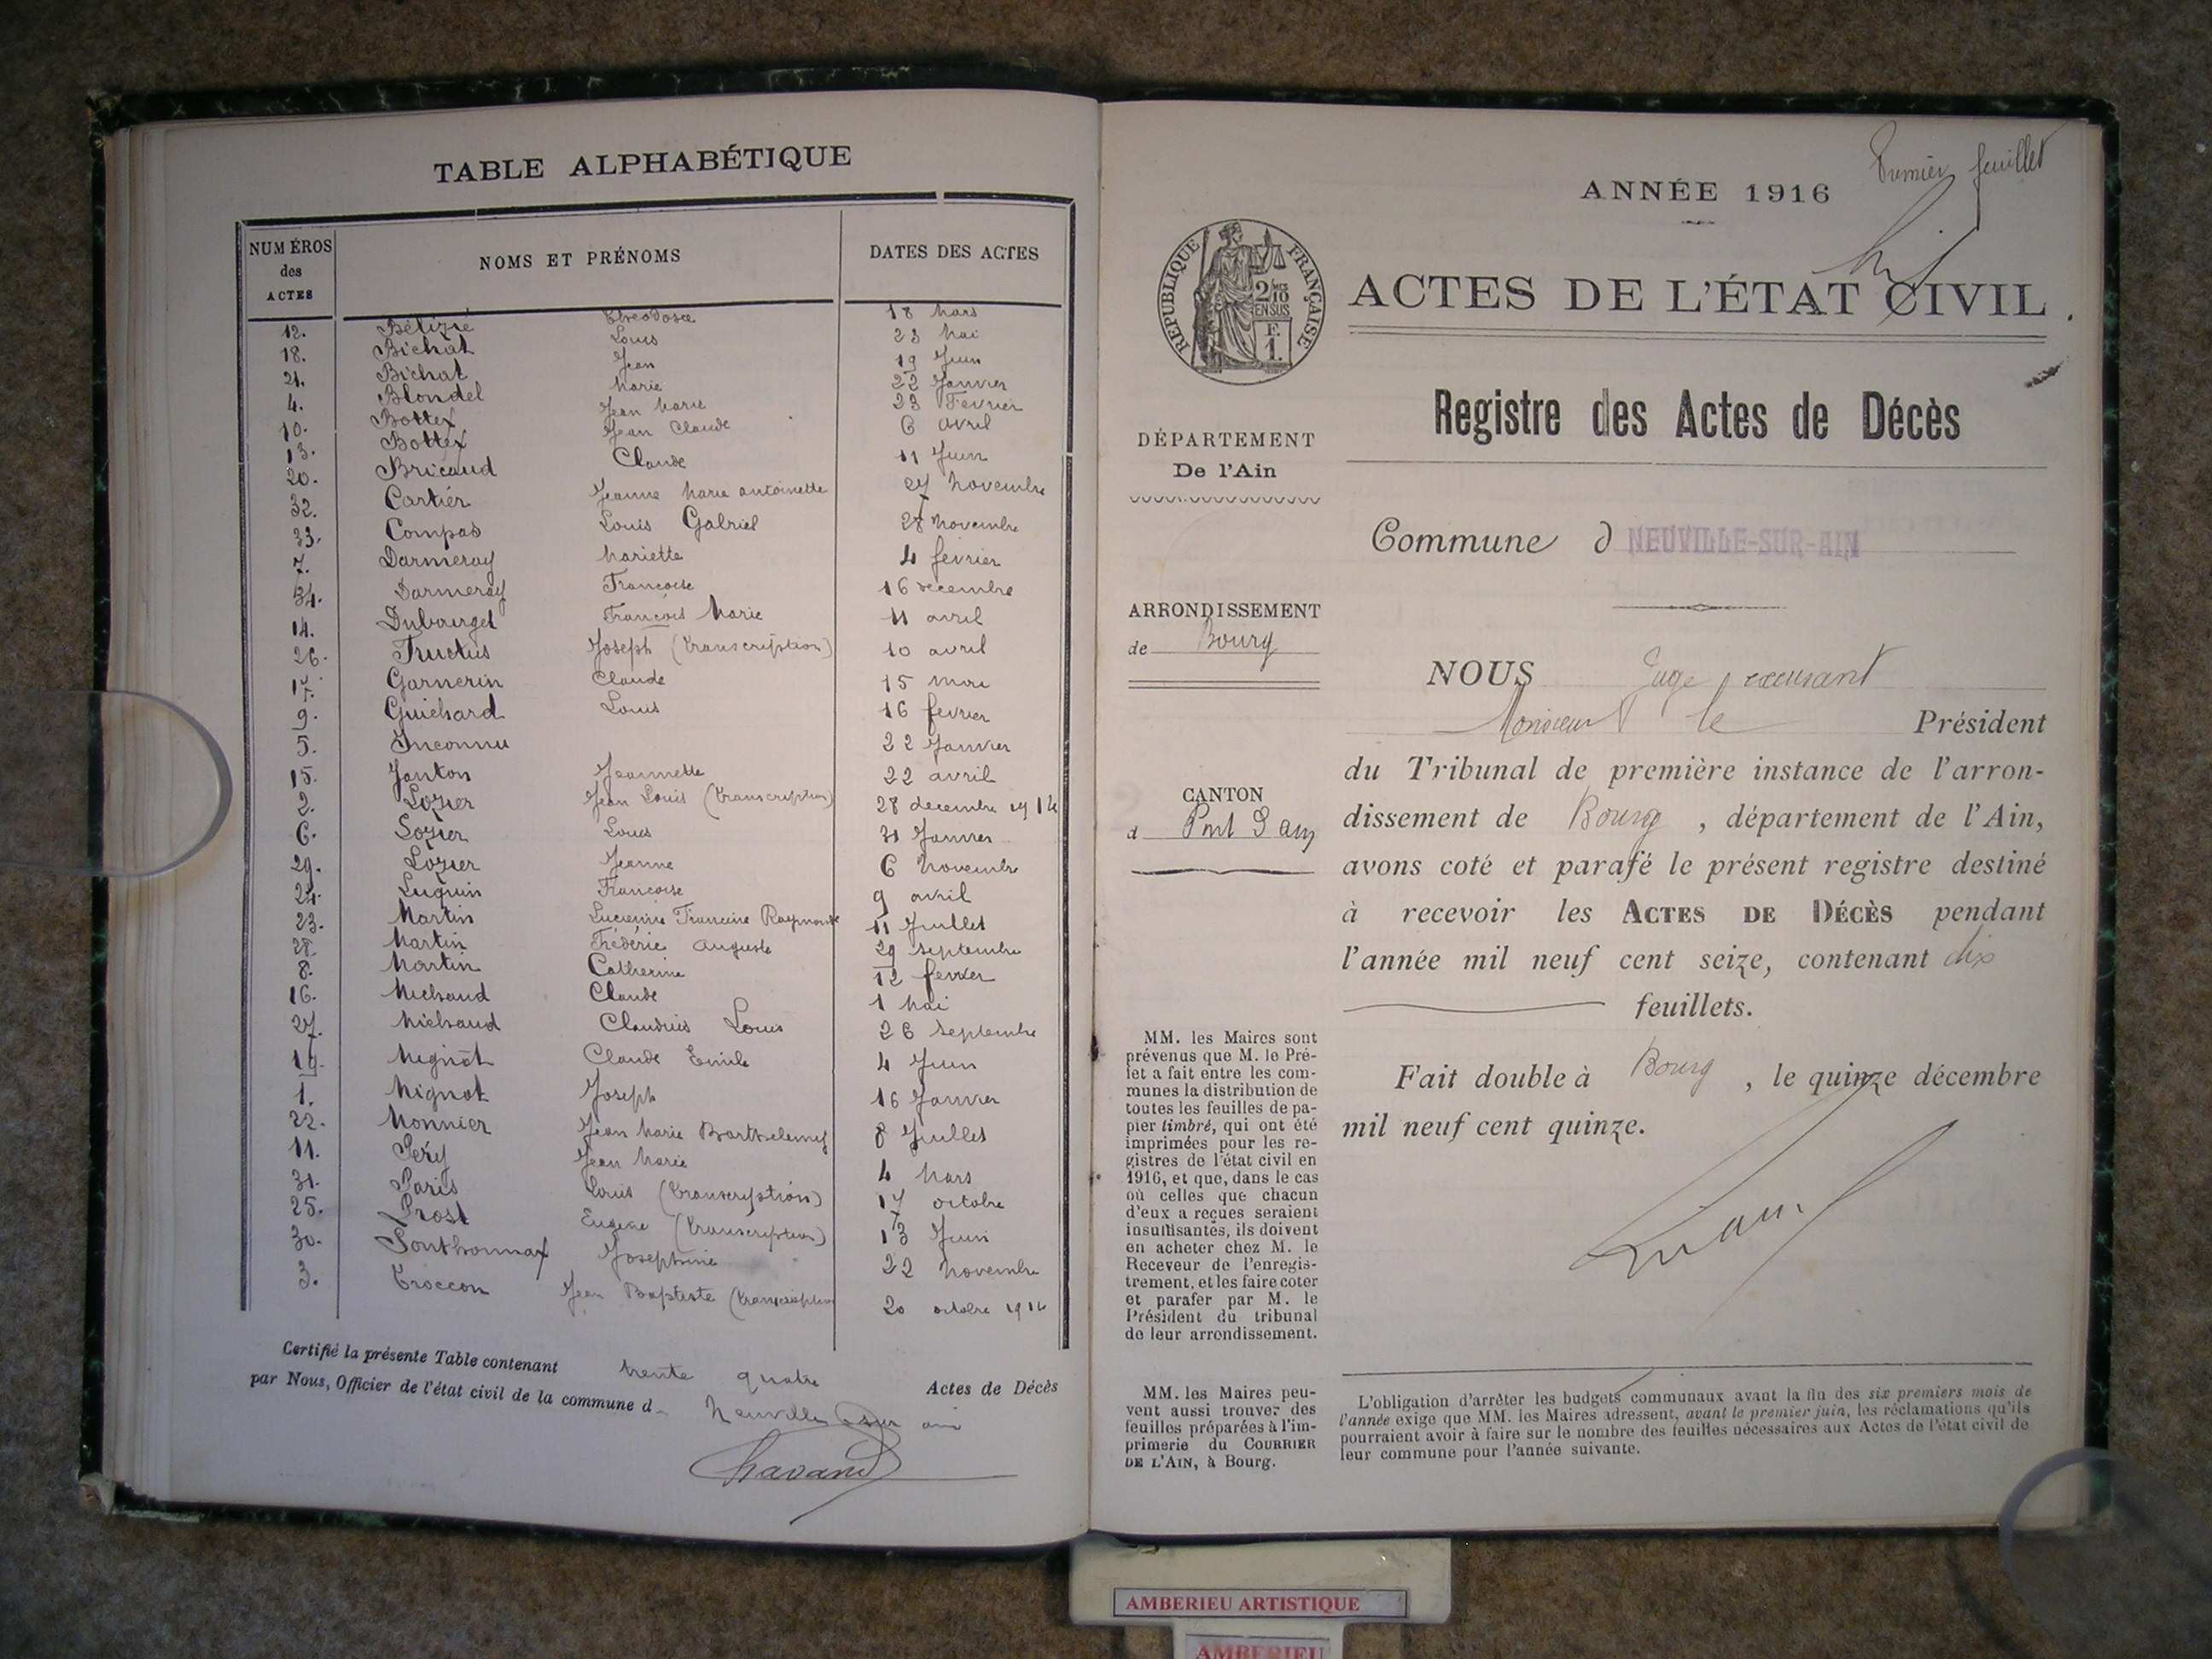 TABLE ALPHABÉTIQUE
NUMÉROS des ACTES NOMS ET PRÉNOMS DATES DES ACTES
12. Bélizié Théodosée 18 Mars
18. Bichat Louis 23 Mai
21. Bichat Jean 19 Juin
4. Blondel Marie 22 Janvier
10. Bottex Jean Marie 23 Fevrier
13. Bottex Jean Claude 6 avril
20. Bricaud Claude 11 Juin
32. Cartier Jeanne Marie antoinette 27 Novembre
33. Compas Louis Gabriel 28 Novembre
7. Darmeray Mariette 4 fevrier
34. Darmeray Francoise 16 decembre
14. Dubourget Francois Marie 11 avril
26. Fructus Joseph (transcription) 10 avril
17. Garnerin Claude 15 Mai
9. Guichard Louis 16 fevrier
5. Inconnu 22 Janvier
15. Janton Jeannette 22 avril
2. Lozier Jean Louis (transcription) 28 decembre 1914
6. Lozier Louis 31 Janvier
29. Lozier Jeanne 6 Novembre
24. Luguin Francoise 9 avril
23. Martin Lucienne Francine Raymonde 11 Juillet
28. Martin Frédéric auguste 29 septembre
8. Martin Catherine 12 fevrier
16. Michaud Claude 1 Mai
27. Michaud Claudius Louis 26 septembre
19. Mignot Claude Emile 4 Juin
1. Mignot Joseph 16 Janvier
22. Monnier Jean Marie Barthelemy 8 Juillet
11. Péry Jean Marie 4 Mars
31. Paris Louis (transcription) 17 octobre
25. Prost Eugene (transcription) 13 Juin
30. Ponthonnax Josephine 22 Novembre
3. Troccon Jean Baptiste (transcription 20 octobre 1914
Certifié la présente Table contenant trente quatre Actes de Décès
par Nous, Officier de l'état civil de la commune d Neuville sur ain
Chavand
Premier feuillet
ANNÉE 1916
RÉPUBLIQUE FRANÇAISE
2/10 EN SUS
F. 1.
ACTES DE L'ÉTAT CIVIL
Registre des Actes de Décès
DÉPARTEMENT
De l'Ain
Commune d NEUVILLE-SUR-AIN
ARRONDISSEMENT
de Bourg
CANTON
d Pont d'ain
NOUS Juge
Monsieur le Président
du Tribunal de première instance de l'arron-
dissement de Bourg, département de l'Ain,
avons coté et parafé le présent registre destiné
à recevoir les ACTES DE DÉCÈS pendant
l'année mil neuf cent seize, contenant dix
feuillets.
Fait double à Bourg, le quinze décembre
mil neuf cent quinze.
MM. les Maires sont
prévenus que M. le Pré-
fet a fait entre les com-
munes la distribution de
toutes les feuilles de pa-
pier timbré, qui ont été
imprimées pour les re-
gistres de l'état civil en
1916, et que, dans le cas
où celles que chacun
d'eux a reçues seraient
insuffisantes, ils doivent
en acheter chez M. le
Receveur de l'enregis-
trement, et les faire coter
et parafer par M. le
Président du tribunal
de leur arrondissement.
MM. les Maires peu-
vent aussi trouver des
feuilles préparées à l'im-
primerie du COURRIER
DE L'AIN, à Bourg.
L'obligation d'arrêter les budgets communaux avant la fin des six premiers mois de
l'année exige que MM. les Maires adressent, avant le premier juin, les réclamations qu'ils
pourraient avoir à faire sur le nombre des feuilles nécessaires aux Actes de l'état civil de
leur commune pour l'année suivante.
AMBERIEU ARTISTIQUE
AMBERIEU